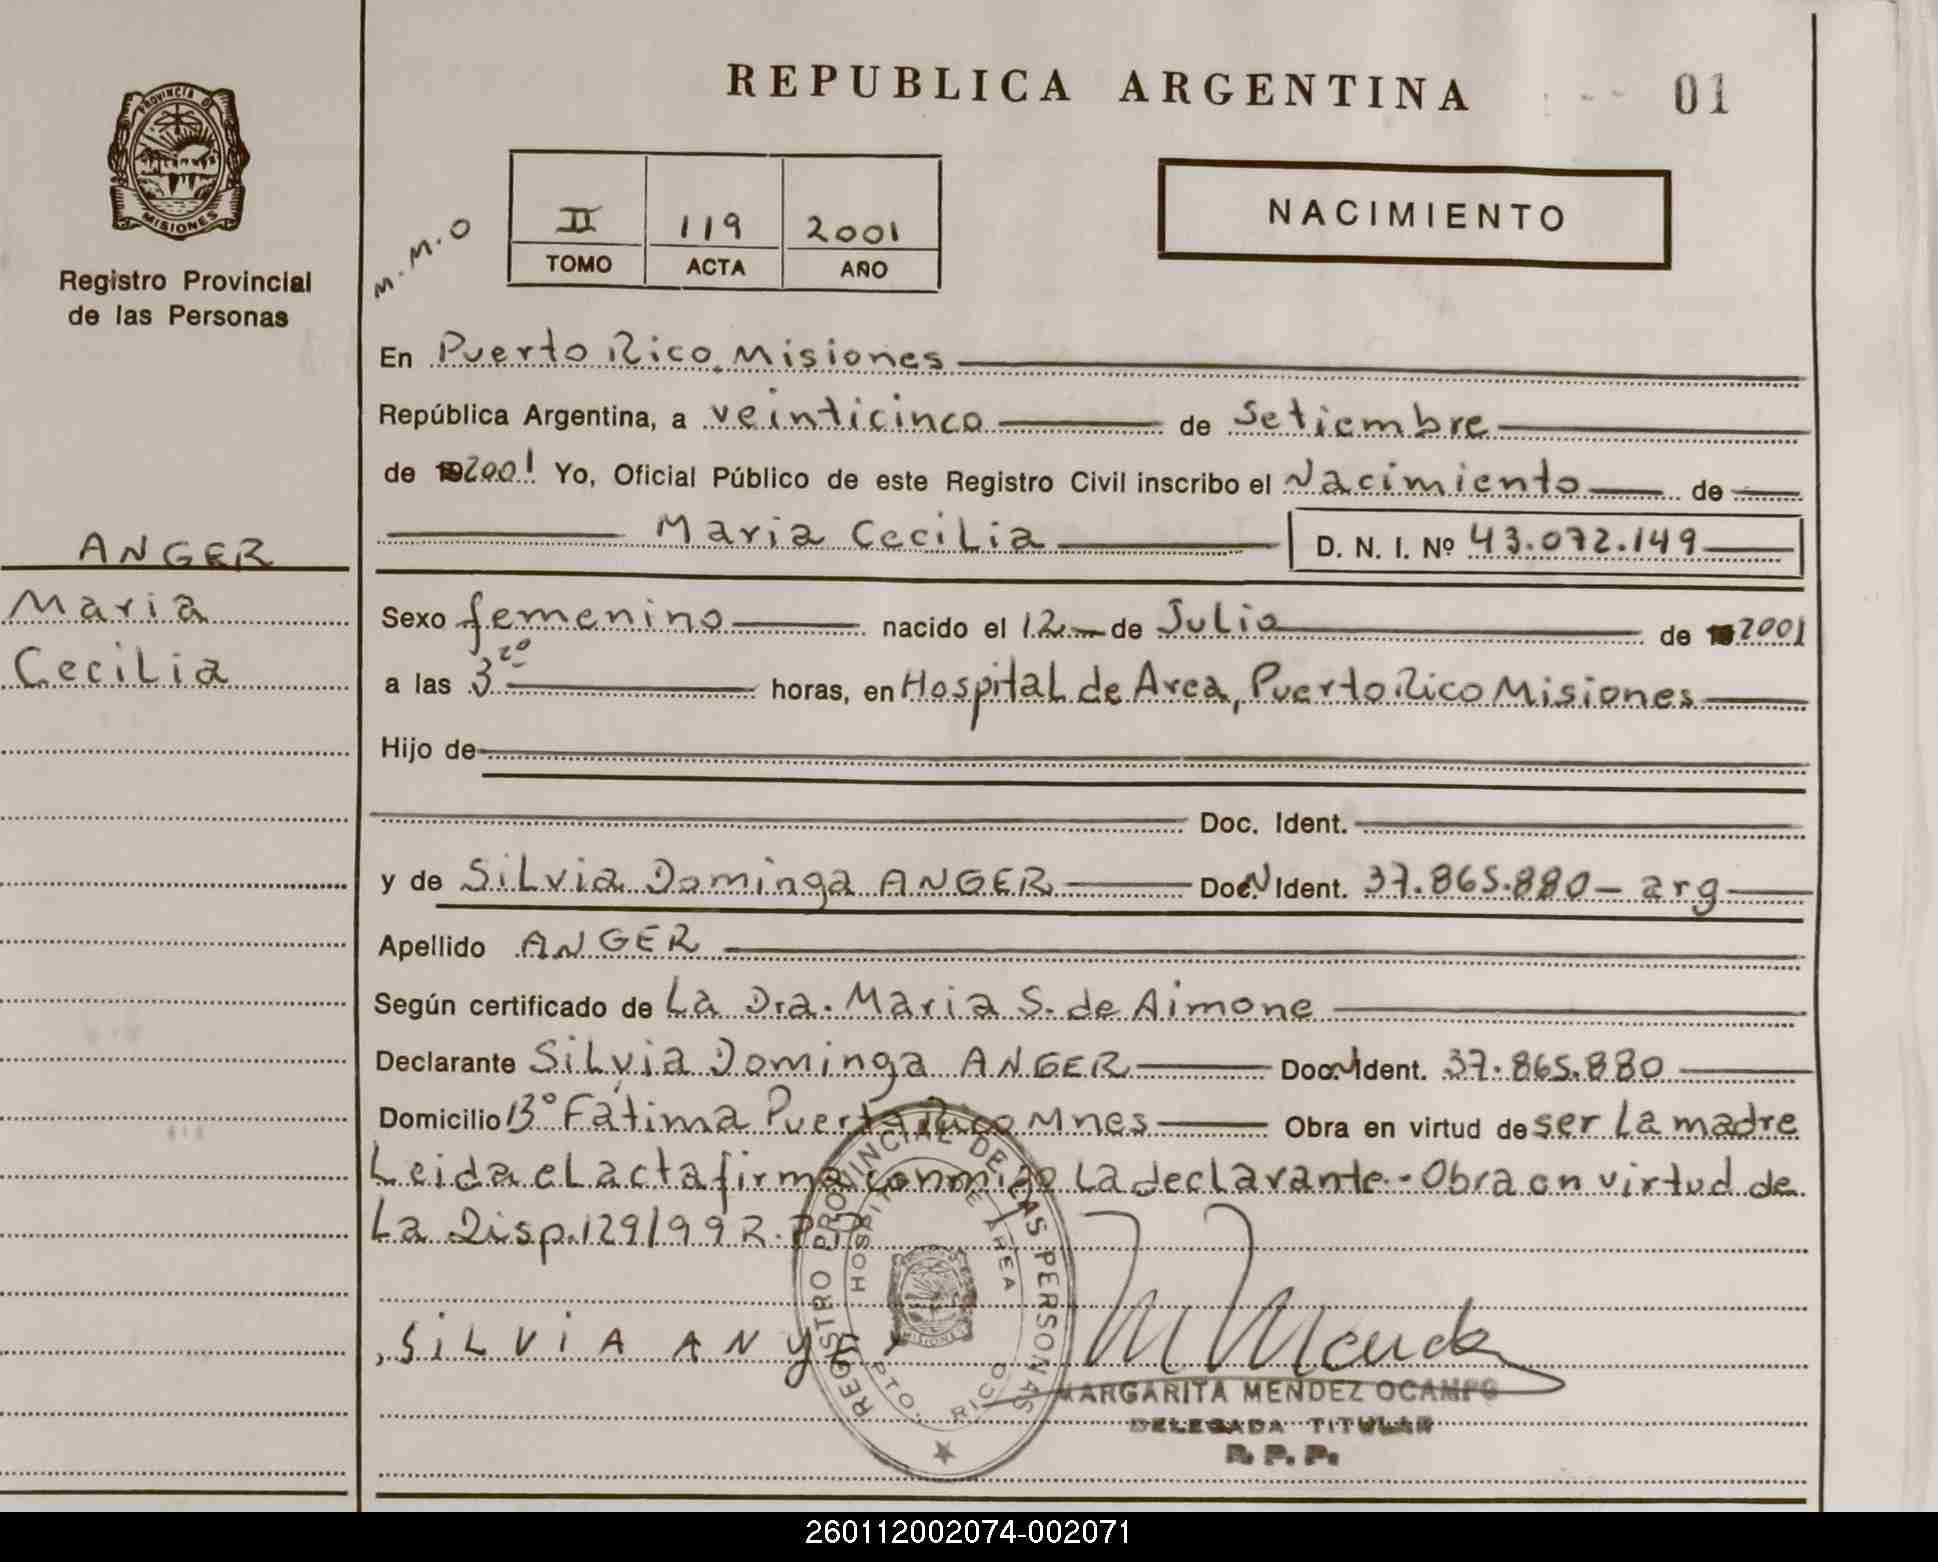 REPUBLICA ARGENTINA
01
PROVINCIA D
MISIONES
Registro Provincial
de las Personas
M.M.O
II 119 2001
TOMO ACTA AÑO
NACIMIENTO
En Puerto Rico Misiones
República Argentina, a veinticinco de Setiembre
de 2001 Yo, Oficial Público de este Registro Civil inscribo el Nacimiento de
Maria Cecilia D. N. I. Nº 43.072.149
ANGER
Maria
Cecilia
Sexo femenino nacido el 12 de Julio de 2001
a las 3 horas, en Hospital de Area, Puerto Rico Misiones
Hijo de
Doc. Ident.
y de Silvia Dominga ANGER Doc. Ident. 37.865.880 - arg
Apellido ANGER
Según certificado de La Dra. Maria S. de Aimone
Declarante Silvia Dominga ANGER Doc. Ident. 37.865.880
Domicilio Bº Fátima Puerto Rico Mnes Obra en virtud de ser La madre
Leida el acta firma conmigo La declarante.- Obra en virtud de
La Disp. 129/99 R.P.P
SiLViA ANyer
REGISTRO PROVINCIAL DE LAS PERSONAS
HOSPITAL DE AREA
MISIONES
PTO. RICO
MARGARITA MENDEZ OCAMPO
DELEGADA TITULAR
R. P. P.
260112002074-002071